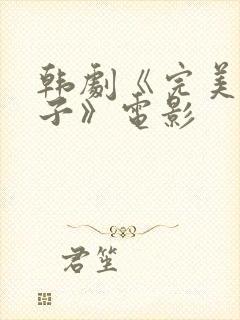 韩劇《完美
子》電影
君笙